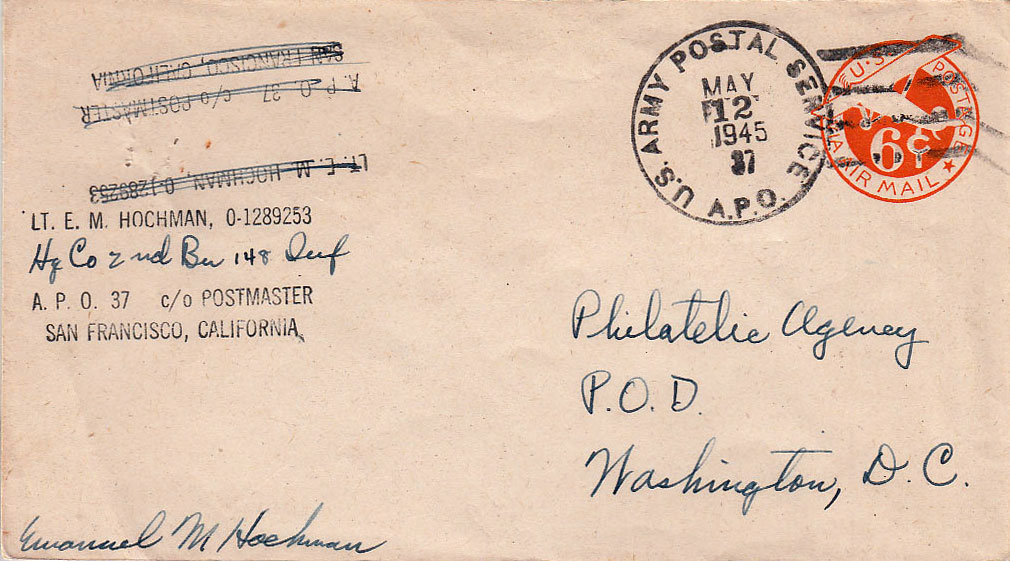 SAN FRANCISCO, CALIFORNIA
A. P. O. 37 c/o POSTMASTER
LT. E. M. HOCHMAN, O-1289253
LT. E. M. HOCHMAN, O-1289253
Hq Co 2nd Bn 148 Inf
A. P. O. 37 c/o POSTMASTER
SAN FRANCISCO, CALIFORNIA
U.S. ARMY POSTAL SERVICE
MAY
12
1945
37
A.P.O.
U.S. POSTAGE
6¢
VIA AIR MAIL
Philatelic Agency
P.O.D.
Washington, D.C.
Emanuel M Hochman